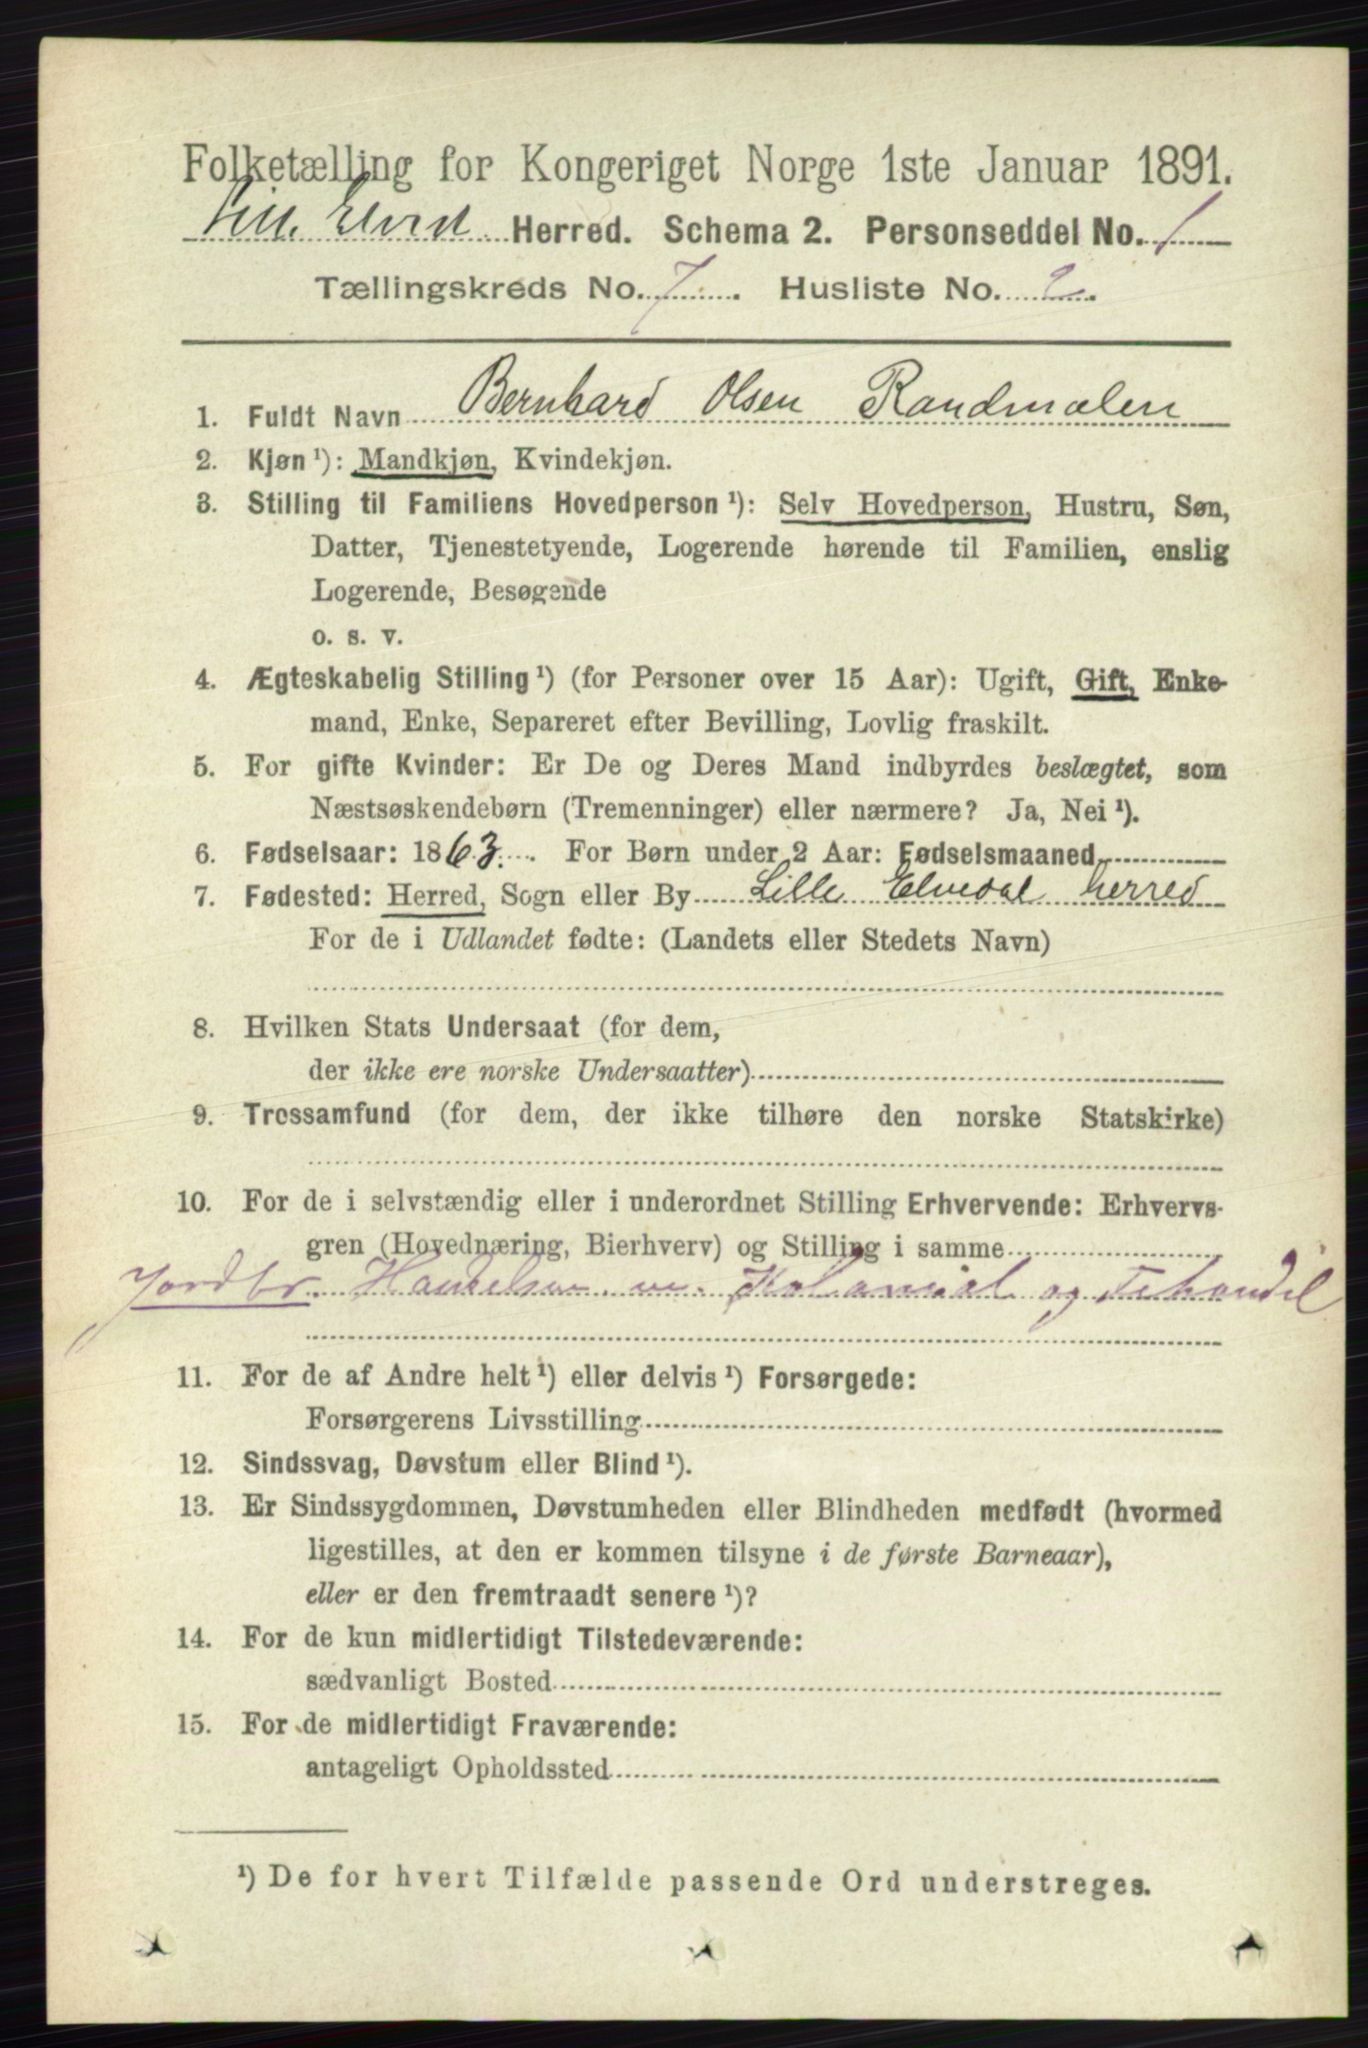 Folketælling for Kongeriget Norge 1ste Januar 1891.
Lill. Elved Herred. Schema 2. Personseddel No. 1
Tællingskreds No. 7. Husliste No. 2.
1. Fuldt Navn Bernhard Olsen Randmælen
2. Kjøn ¹): Mandkjøn, Kvindekjøn.
3. Stilling til Familiens Hovedperson ¹): Selv Hovedperson, Hustru, Søn,
Datter, Tjenestetyende, Logerende hørende til Familien, enslig
Logerende, Besøgende
o. s. v.
4. Ægteskabelig Stilling ¹) (for Personer over 15 Aar): Ugift, Gift, Enke-
mand, Enke, Separeret efter Bevilling, Lovlig fraskilt.
5. For gifte Kvinder: Er De og Deres Mand indbyrdes beslægtet, som
Næstsøskendebørn (Tremenninger) eller nærmere? Ja, Nei ¹).
6. Fødselsaar: 1863. For Børn under 2 Aar: Fødselsmaaned
7. Fødested: Herred, Sogn eller By Lille Elvedal herred
For de i Udlandet fødte: (Landets eller Stedets Navn)
8. Hvilken Stats Undersaat (for dem,
der ikke ere norske Undersaatter)
9. Trossamfund (for dem, der ikke tilhøre den norske Statskirke)
10. For de i selvstændig eller i underordnet Stilling Erhvervende: Erhvervs-
gren (Hovednæring, Bierhverv) og Stilling i samme
Jordbr. Handelsm. m. Kolonial og
11. For de af Andre helt ¹) eller delvis ¹) Forsørgede:
Forsørgerens Livsstilling
12. Sindssvag, Døvstum eller Blind ¹).
13. Er Sindssygdommen, Døvstumheden eller Blindheden medfødt (hvormed
ligestilles, at den er kommen tilsyne i de første Barneaar),
eller er den fremtraadt senere ¹)?
14. For de kun midlertidigt Tilstedeværende:
sædvanligt Bosted
15. For de midlertidigt Fraværende:
antageligt Opholdssted
¹) De for hvert Tilfælde passende Ord understreges.